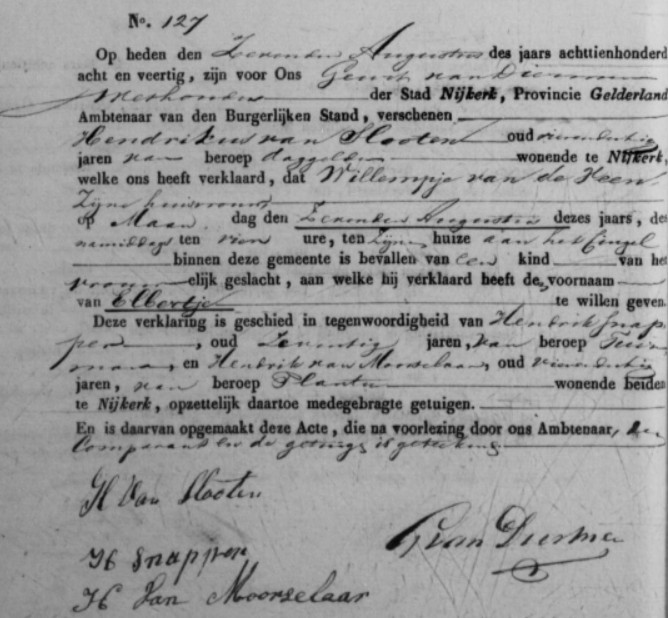 No. 127
Op heden den Zevenden Augustus des jaars achttienhonderd
acht en veertig, zijn voor Ons Gerrit van Diermen
Wethouder der Stad Nijkerk, Provincie Gelderland
Ambtenaar van den Burgerlijken Stand, verschenen
Hendrikus van Slooten oud vierendertig
jaren van beroep daggelder wonende te Nijkerk,
welke ons heeft verklaard, dat Willempje van de Heen
Zijne huisvrouw
op Maan dag den Zevenden Augustus dezes jaars, des
namiddags ten vier ure, ten Zijne huize aan het Cingel
binnen deze gemeente is bevallen van een kind van het
vrouw elijk geslacht, aan welke hij verklaard heeft de voornaam
van Elbertje te willen geven
Deze verklaring is geschied in tegenwoordigheid van Hendrik Snap
per, oud Zeventig jaren, van beroep
en Hendrik van Moorselaar, oud vierendertig
jaren, van beroep Planter wonende beiden
te Nijkerk, opzettelijk daartoe medegebragte getuigen.
En is daarvan opgemaakt deze Acte, die na voorlezing door ons Ambtenaar, de
Comparant en de getuigen is getekend
H Van Slooten
H Snapper
G van Diermen
H Van Moorselaar